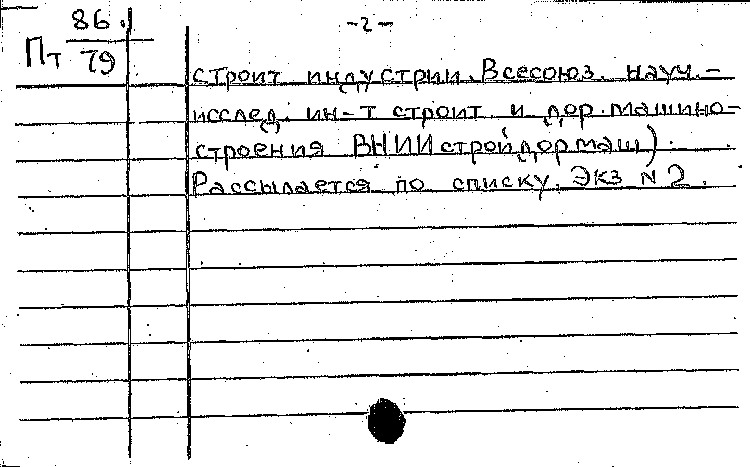 -2-
86.
Пт 79
строит индустрии. Всесоюз. науч.-
исслед. ин-т строит. и дор. машино-
строения ВНИИстройдормаш).
Рассылается по списку. Экз N 2.